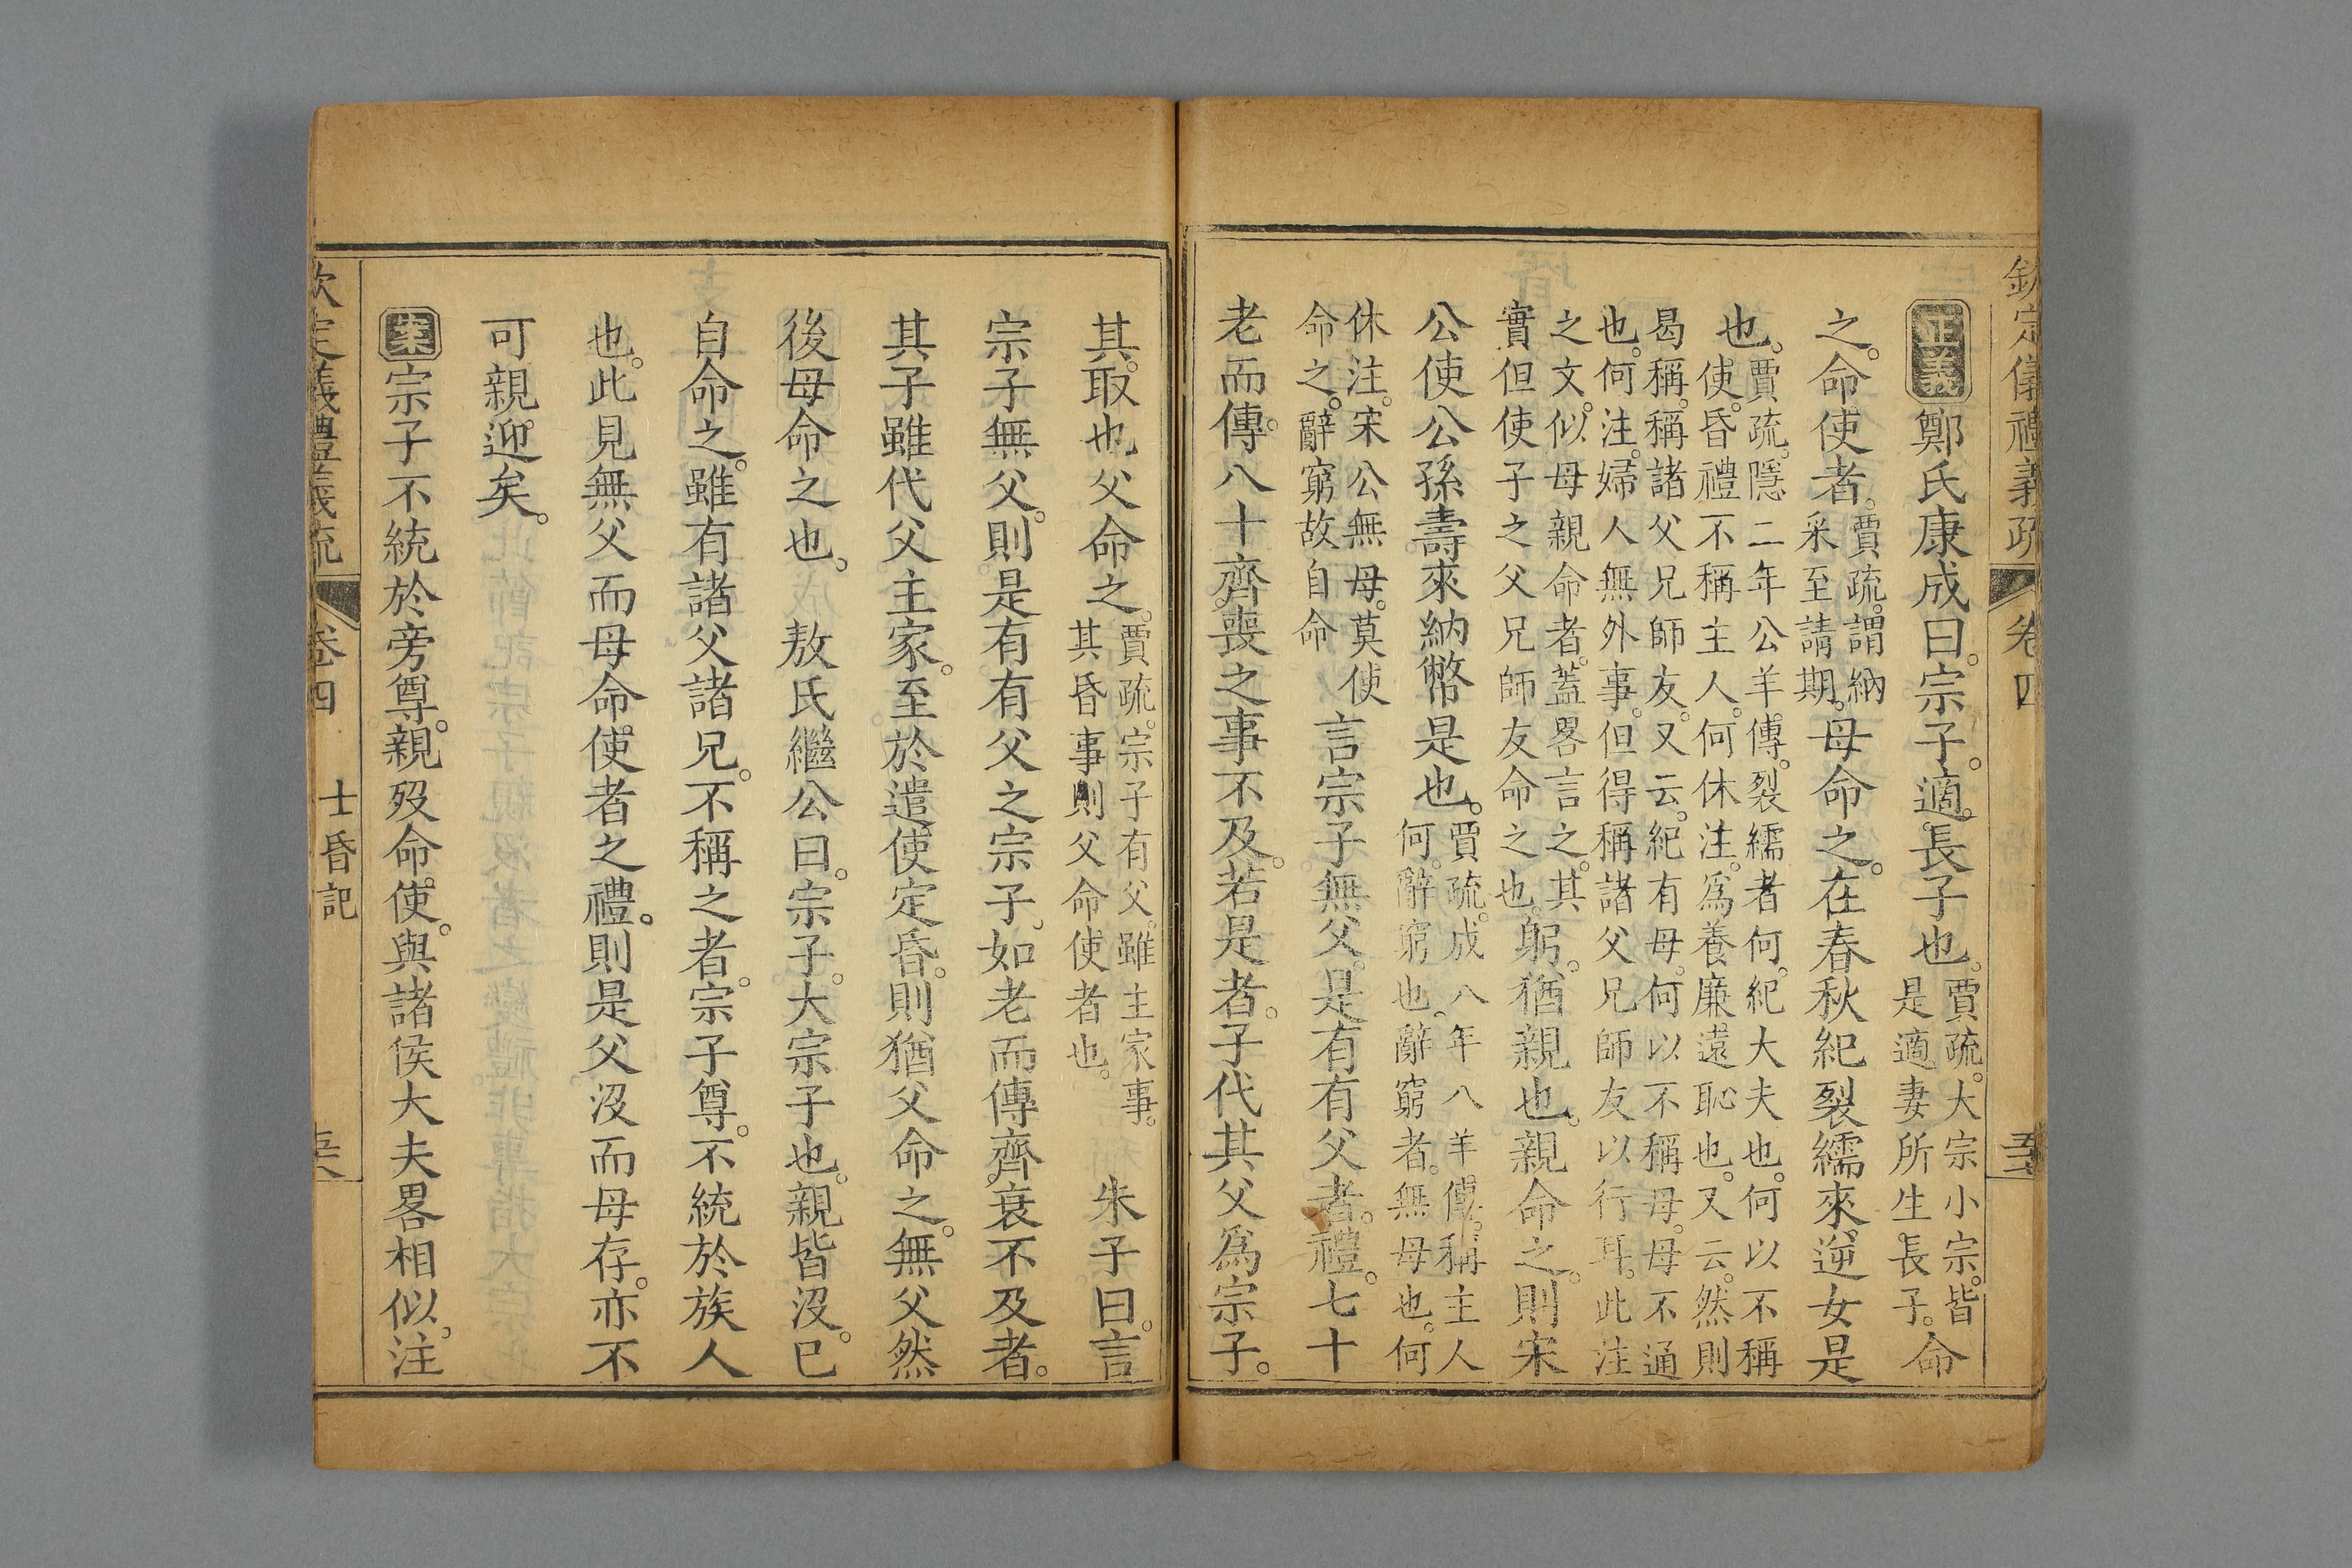 欽定儀禮義疏 卷四
正義鄭氏康成曰。宗子。適長子也。賈疏。大宗小宗。皆是適妻所生長子。命
之。命使者。賈疏。謂納采至請期。母命之。在春秋紀裂繻來逆女是
也。賈疏。隱二年公羊傳。裂繻者何。紀大夫也。何以不稱使。昏禮不稱主人。何休注。爲養廉遠恥也。又云。然則
曷稱。稱諸父兄師友。又云。紀有母。何以不稱母。母不通也。何注。婦人無外事。但得稱諸父兄師友以行耳。此注
之文。似母親命者。蓋畧言之。其實但使子之父兄師友命之也。躬。猶親也。親命之。則宋
公使公孫壽來納幣是也。賈疏。成八年公羊傳。稱主人何。辭窮也。辭窮者。無母也。何
休注。宋公無母。莫使命之。辭窮故自命 言宗子無父。是有有父者。禮。七十
老而傳。八十齊喪之事不及。若是者。子代其父爲宗子。
其取也父命之。賈疏。宗子有父。雖主家事。其昏事則父命使者也。 朱子曰。言
宗子無父。則是有有父之宗子。如老而傳。齊衰不及者。
其子雖代父主家。至於遣使定昏。則猶父命之。無父然
後母命之也。 敖氏繼公曰。宗子。大宗子也。親皆沒。已
自命之。雖有諸父諸兄。不稱之者。宗子尊。不統於族人
也。此見無父而母命使者之禮。則是父沒而母存。亦不
可親迎矣。
案宗子不統於旁尊。親歿命使。與諸侯大夫畧相似。注
欽定儀禮義疏 卷四 士昏記